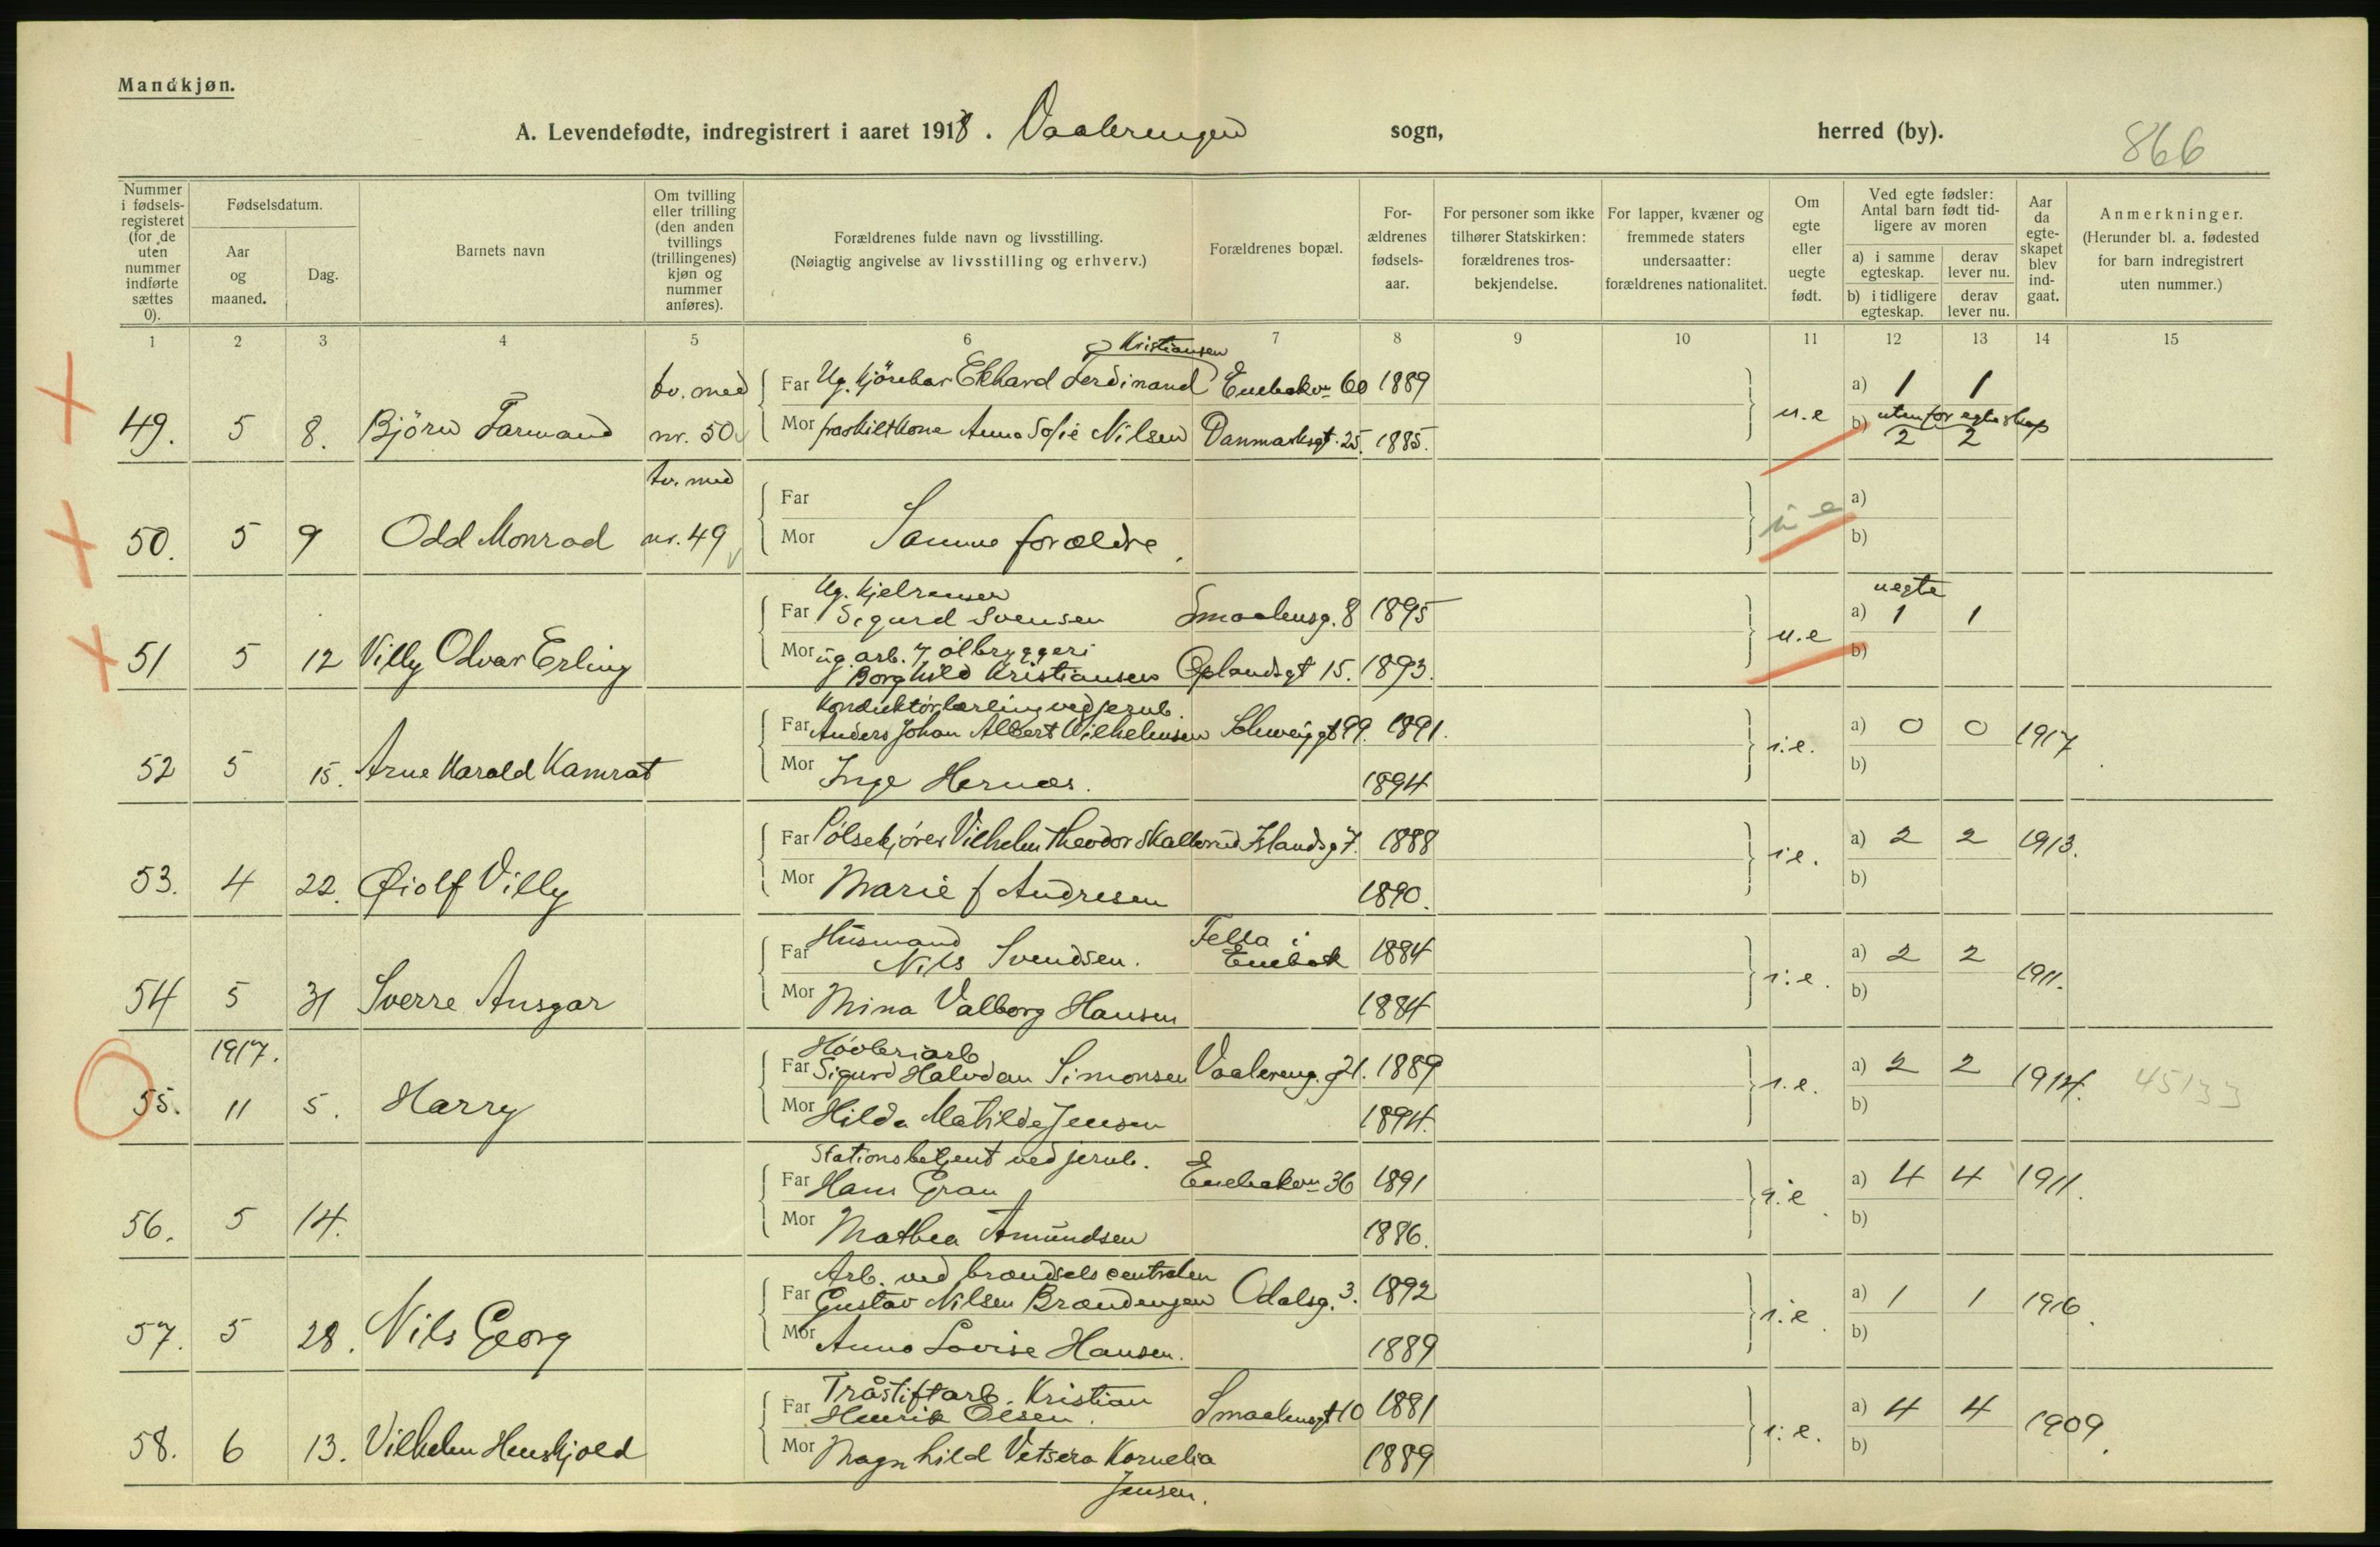 Mandkjøn.
A. Levendefødte, indregistrert i aaret 1918. Vaalerengen sogn, herred (by).
866
Nummer i fødsels-registeret (for de uten nummer indførte sættes 0).
Fødselsdatum.
Aar og maaned.
Dag.
Barnets navn
Om tvilling eller trilling (den anden tvillings (trillingenes) kjøn og nummer anføres).
Forældrenes fulde navn og livsstilling.
(Nøiagtig angivelse av livsstilling og erhverv.)
Forældrenes bopæl.
For-ældrenes fødsels-aar.
For personer som ikke tilhører Statskirken: forældrenes tros-bekjendelse.
For lapper, kvæner og fremmede staters undersaatter: forældrenes nationalitet.
Om egte eller uegte født.
Ved egte fødsler: Antal barn født tid-ligere av moren
a) i samme egteskap.
derav lever nu.
b) i tidligere egteskap.
derav lever nu.
Aar da egte-skapet blev ind-gaat.
Anmerkninger.
(Herunder bl. a. fødested for barn indregistrert uten nummer.)
1 2 3 4 5 6 7 8 9 10 11 12 13 14 15
Kristiansen
49. 5 8. Björn Farmand tv. med nr. 50 Far Ug. kjörekar Ekhard Ferdinand Enebakv. 60 1889 u.e a) 1 1
Mor fraskilt kone Anna Sofie Nilsen Danmarksgt. 25. 1885. b) utenfor egteskap 2 2
50. 5 9 Odd Monrad tv. med nr. 49 Far u e a)
Mor Samme forældre. b)
51 5 12 Villy Odvar Erling Ug. Kjelrenser
Far Sigurd Svensen Smaalensg. 8 1895 u.e uegte a) 1 1
Mor ug. arb. i ölbryggeri
Borghild Kristiansen Oplandsgt 15. 1893. b)
52 5 15. Arne Harald Kamrat Konduktörlærling ved jernb.
Far Anders Johan Albert Wilhelmsen Schweigg. 99. 1891. i.e. a) 0 0 1917
Mor Inga Hernæs. 1894 b)
53. 4 22. Øiolf Villy Far Pölsekjører Vilhelm Theodor Skallerud Islandsg 7. 1888 i.e. a) 2 2 1913.
Mor Marie f Andresen 1890. b)
54 5 31 Sverre Ansgar Husmand
Far Nils Svendsen. Fella i Enebak 1884 i.e. a) 2 2 1911.
Mor Mina Valborg Hansen 1884 b)
1917.
55. 11 5. Harry Høvleriarb
Far Sigurd Halvdan Simonsen Vaalereng. g 21. 1889 i.e. a) 2 2 1914. 45133
Mor Hilda Matilde Jensen 1894. b)
56. 5 14. Stationsbetjent ved jernb.
Far Hans Gran Enebakvn 36 1891 i.e. a) 4 4 1911.
Mor Mathea Amundsen 1886. b)
57. 5 28. Nils Georg Arb. ved brændselscentralen
Far Gustav Nilsen Brændengen Odalsg. 3. 1892 i.e. a) 1 1 1916.
Mor Anna Lovise Hansen. 1889 b)
58. 6 13. Vilhelm Henskjold Tråstiftarb. Kristian
Far Henrik Olsen. Smaalensgt 10 1881 i.e. a) 4 4 1909.
Mor Magnhild Vetsera Kornelia 1889 b)
Jensen.